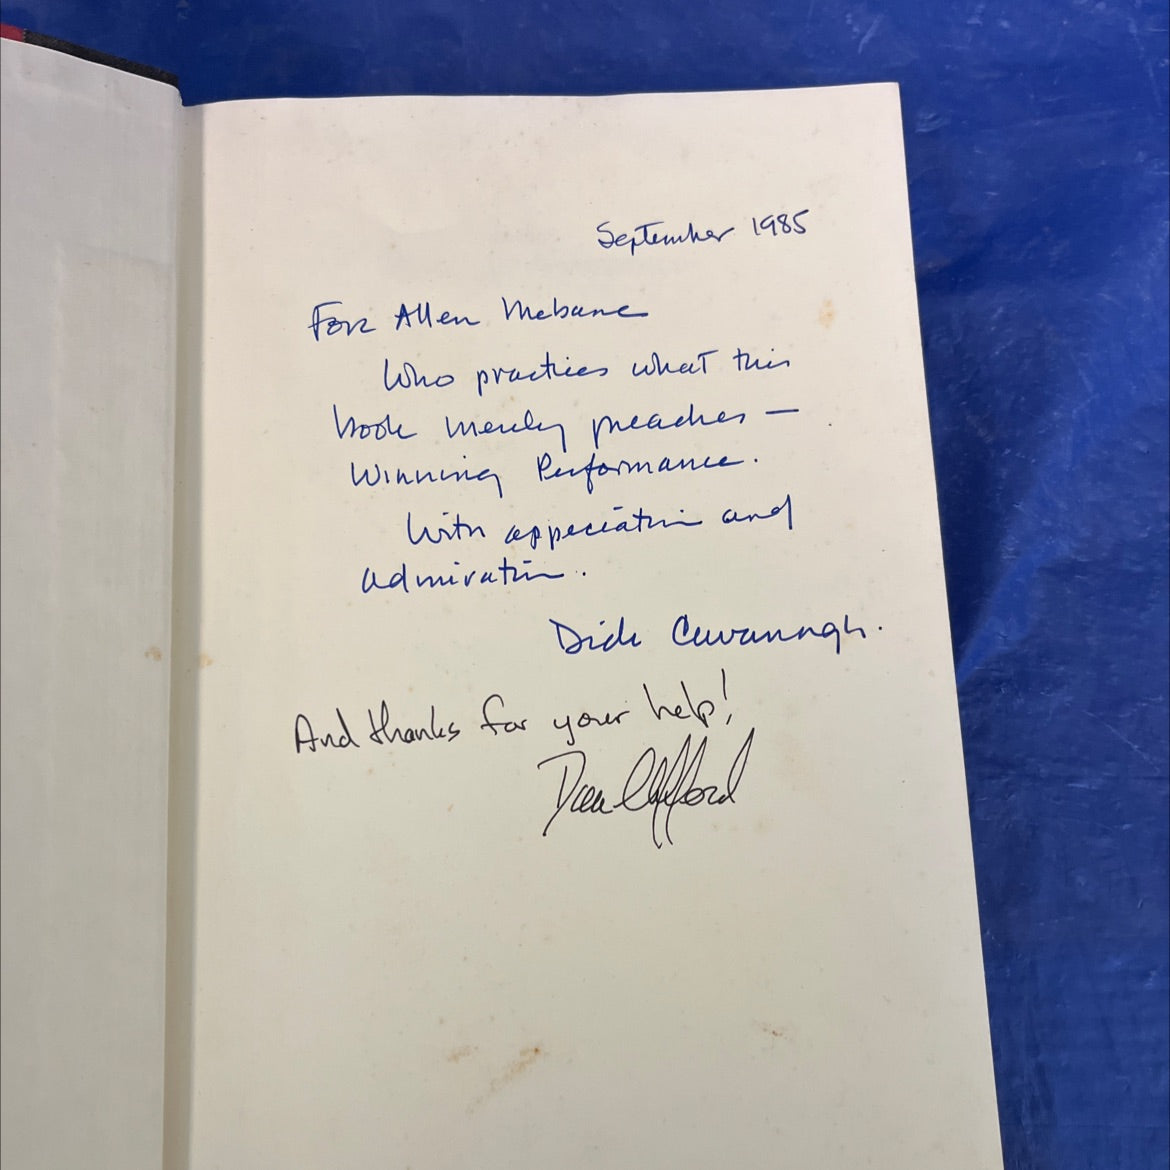 September 1985
For Allen Mebane
Who practices what this
book merely preaches —
Winning Performance.
With appreciation and
admiration.
Dick Cavanagh.
And thanks for your help!
Don Clifford